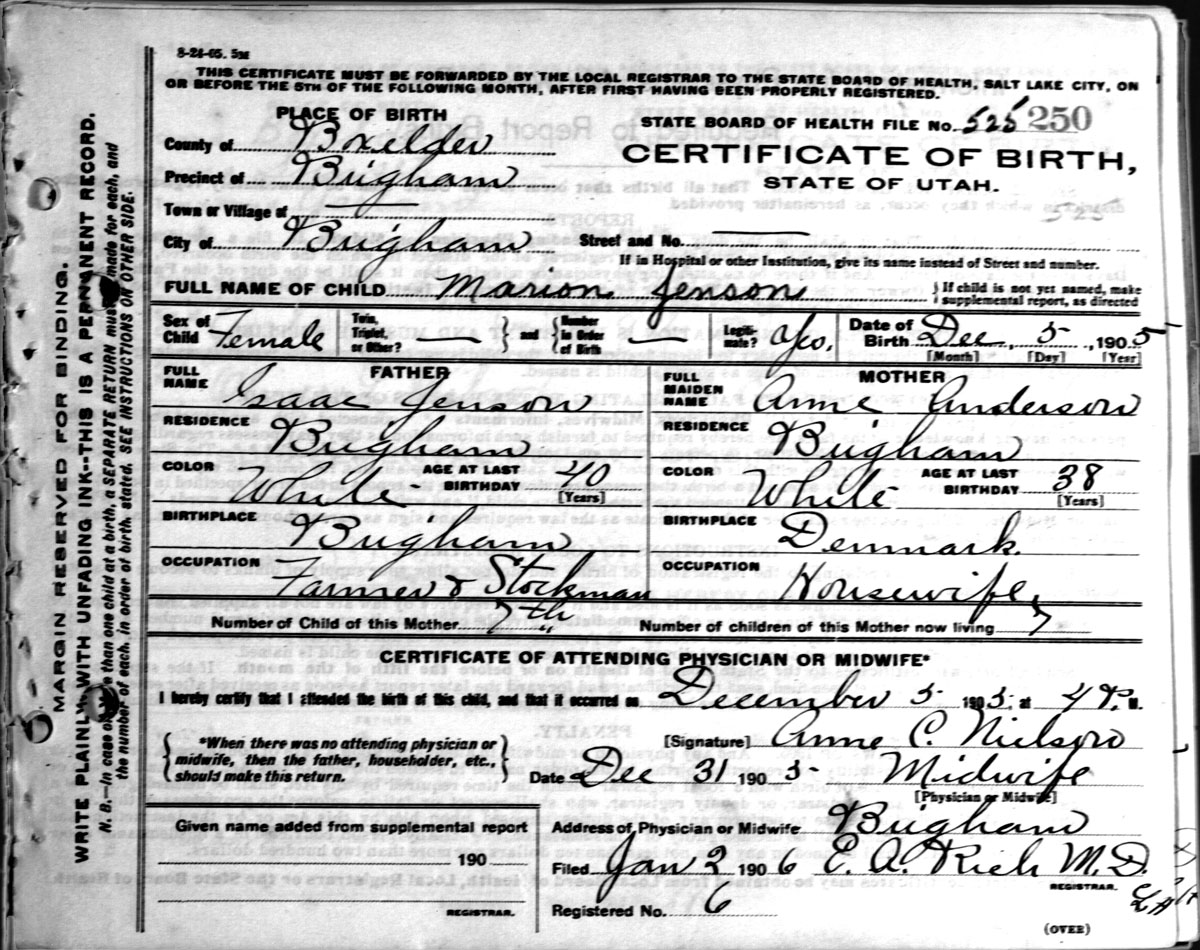 8-24-05. 5M
THIS CERTIFICATE MUST BE FORWARDED BY THE LOCAL REGISTRAR TO THE STATE BOARD OF HEALTH, SALT LAKE CITY, ON
OR BEFORE THE 5TH OF THE FOLLOWING MONTH, AFTER FIRST HAVING BEEN PROPERLY REGISTERED.
PLACE OF BIRTH
County of Boxelder
Precinct of Brigham
Town or Village of
City of Brigham
STATE BOARD OF HEALTH FILE No. 525 250
CERTIFICATE OF BIRTH,
STATE OF UTAH.
525
Street and No.
If in Hospital or other Institution, give its name instead of Street and number.
FULL NAME OF CHILD Marion Jenson } If child is not yet named, make
supplemental report, as directed
Sex of Child Female Twin, Triplet, or Other? — } and { Number in Order of Birth — Legitimate? Yes. Date of Birth Dec 5, 1905
[Month] [Day] [Year]
FATHER
FULL NAME Isaac Jenson
RESIDENCE Brigham
COLOR White AGE AT LAST BIRTHDAY 40
[Years]
BIRTHPLACE Brigham
OCCUPATION Farmer & Stockman
MOTHER
FULL MAIDEN NAME Anne Anderson
RESIDENCE Brigham
COLOR White AGE AT LAST BIRTHDAY 38
[Years]
BIRTHPLACE Denmark.
OCCUPATION Housewife,
Number of Child of this Mother 7th Number of children of this Mother now living 7
CERTIFICATE OF ATTENDING PHYSICIAN OR MIDWIFE*
I hereby certify that I attended the birth of this child, and that it occurred on December 5 1905, at 4 P. M.
{ *When there was no attending physician or
midwife, then the father, householder, etc.,
should make this return. }
[Signature] Anne C. Nielson
Date Dec 31 1905 Midwife
[Physician or Midwife]
Given name added from supplemental report
190
REGISTRAR.
Address of Physician or Midwife Brigham
Filed Jan 2 1906 E. A. Rich M.D.
REGISTRAR.
Registered No. 6
(OVER)
MARGIN RESERVED FOR BINDING.
WRITE PLAINLY WITH UNFADING INK--THIS IS A PERMANENT RECORD.
N. B.—In case of more than one child at a birth, a SEPARATE RETURN must be made for each, and
the number of each, in order of birth, stated. SEE INSTRUCTIONS ON OTHER SIDE.